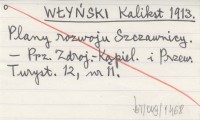 WŁYŃSKI Kalikst 1913.
Plany rozwoju Szczawnicy.
– Prz. Zdroj.-Kąpiel. i Przew.
Turyst. 12, nr 11.